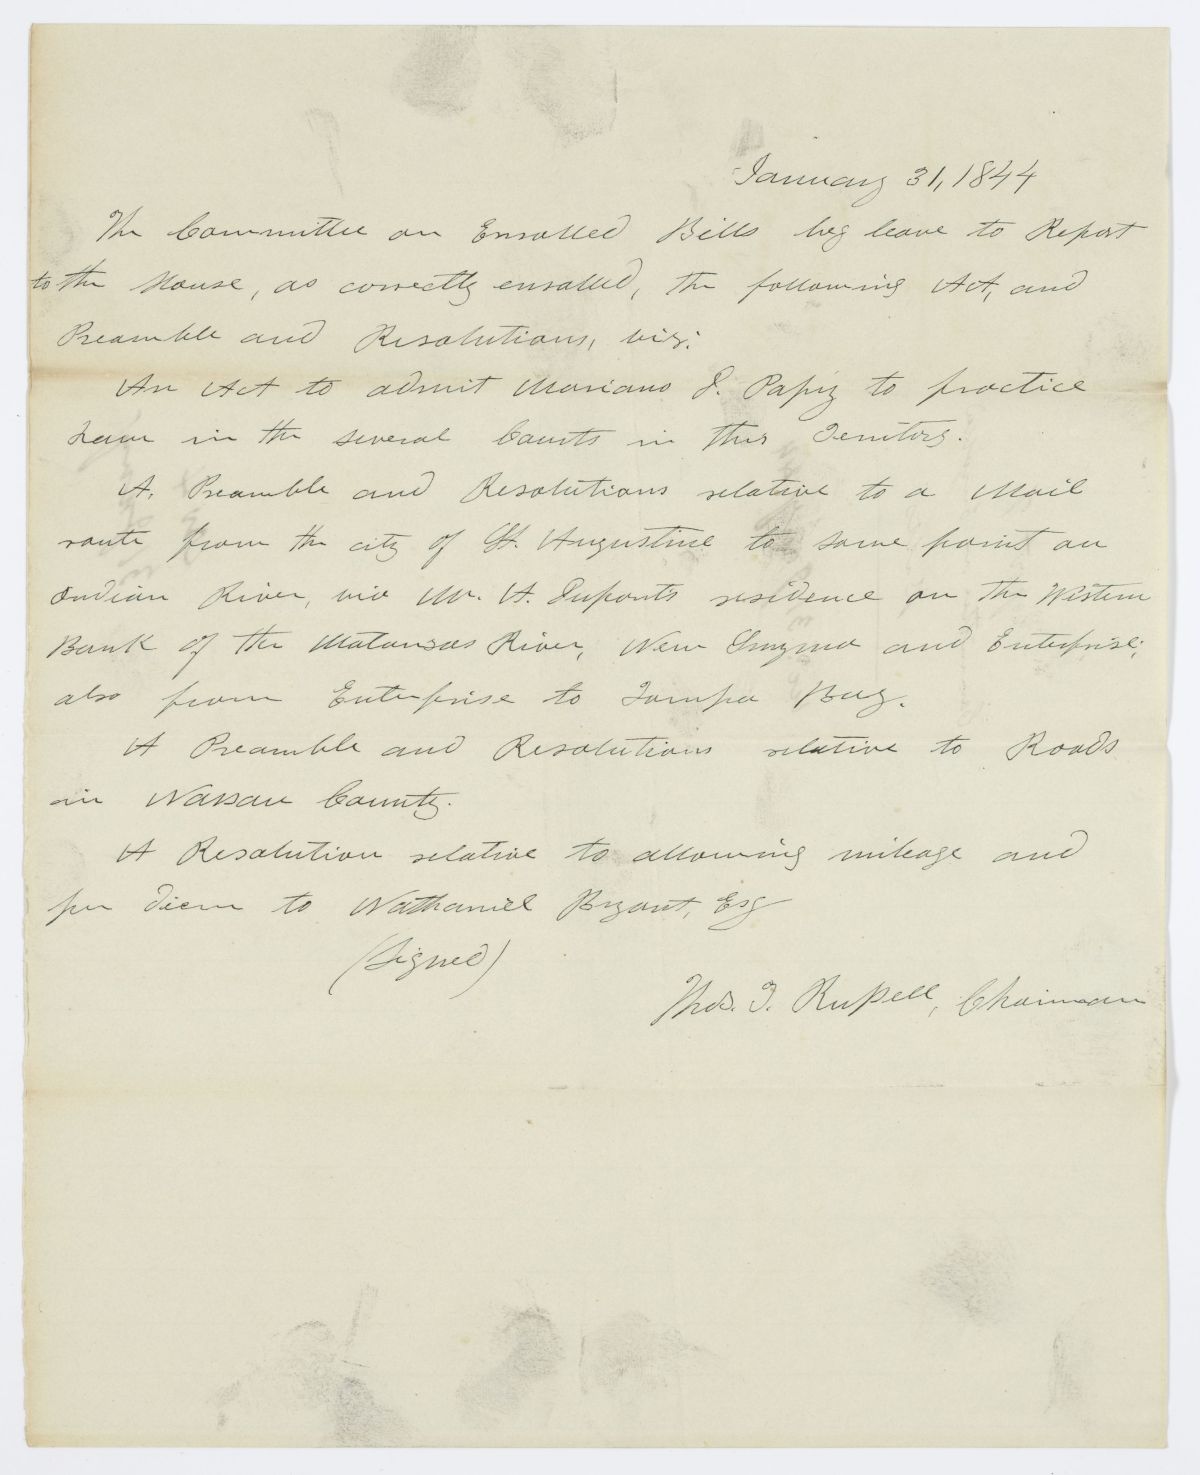 January 31, 1844
The Committee on Enrolled Bills beg leave to Report
to the House, as correctly enrolled, the following Act, and
Preamble and Resolutions, viz:
An Act to admit Mariano D. Papy to practice
Law in the several Courts in this Territory.
A. Preamble and Resolutions relative to a Mail
route from the city of St. Augustine to some point on
Indian River, via Mr. A. Dupont's residence on the Western
Bank of the Matanzas River, New Smyrna and Enterprise;
also from Enterprise to Tampa Bay.
A Preamble and Resolutions relative to Roads
in Nassau County.
A Resolution relative to allowing mileage and
per diem to Nathaniel Bryant, Esq
(Signed)
Thos. T. Russell, Chairman